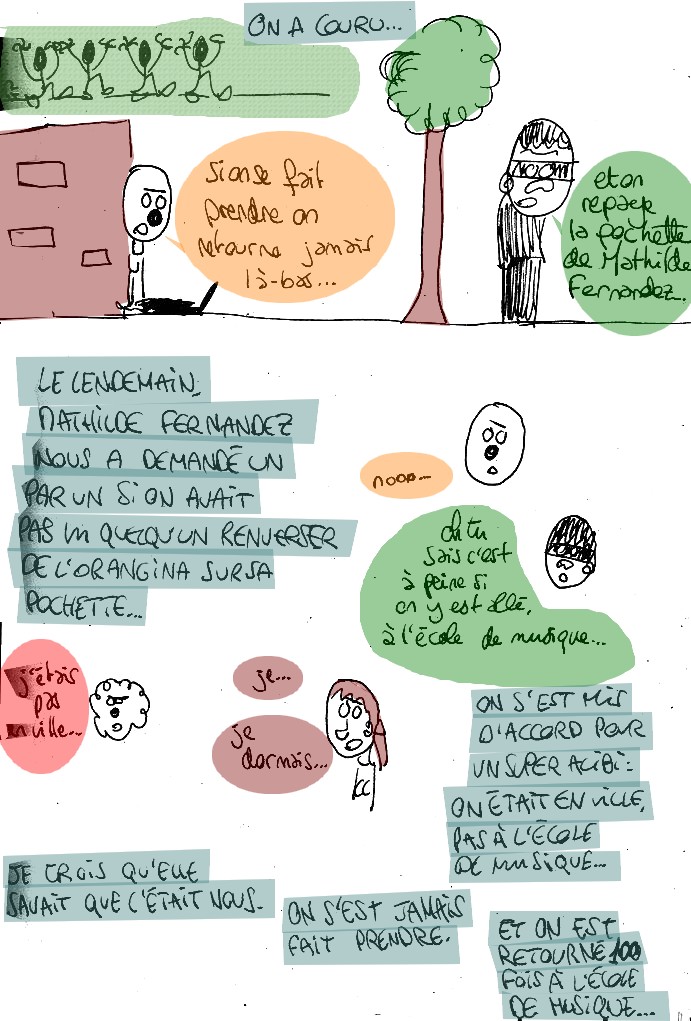 ON A COURU...
si on se fait
prendre on
retourne jamais
là-bas...
et on
repaye
la pochette
de Mathilde
Fernandez.
LE LENDEMAIN,
MATHILDE FERNANDEZ
NOUS A DEMANDÉ UN
PAR UN SI ON AVAIT
PAS VU QUELQU'UN RENVERSER
DE L'ORANGINA SUR SA
POCHETTE...
nooo...
oh tu
sais c'est
à peine si
on y est allé,
à l'école de musique...
j'étais
pas
en ville...
je...
je
dormais...
ON S'EST MIS
D'ACCORD POUR
UN SUPER ALIBI :
ON ÉTAIT EN VILLE,
PAS À L'ÉCOLE
DE MUSIQUE...
JE CROIS QU'ELLE
SAVAIT QUE C'ÉTAIT NOUS.
ON S'EST JAMAIS
FAIT PRENDRE.
ET ON EST
RETOURNÉ 100
FOIS À L'ÉCOLE
DE MUSIQUE...